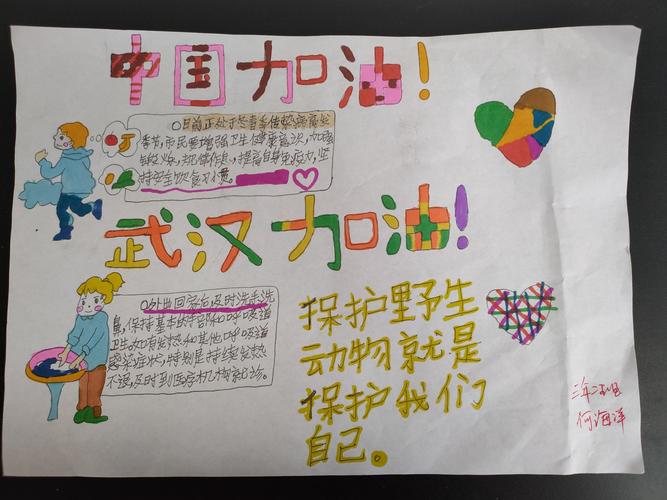 中国加油！
〇目前正处于冬春季传染病高发
季节，市民要增强卫生健康意识，加强
锻炼，规律作息，提高自身免疫力，坚
持安全饮食习惯。
武汉加油！
〇外出回家后，及时洗手洗
鼻，保持基本的手部和呼吸道
卫生，如有发热和其他呼吸道
感染症状，特别是持续发热
不退，及时到医疗机构就诊。
保护野生
动物就是
保护我们
自己。
三年二班
何海洋